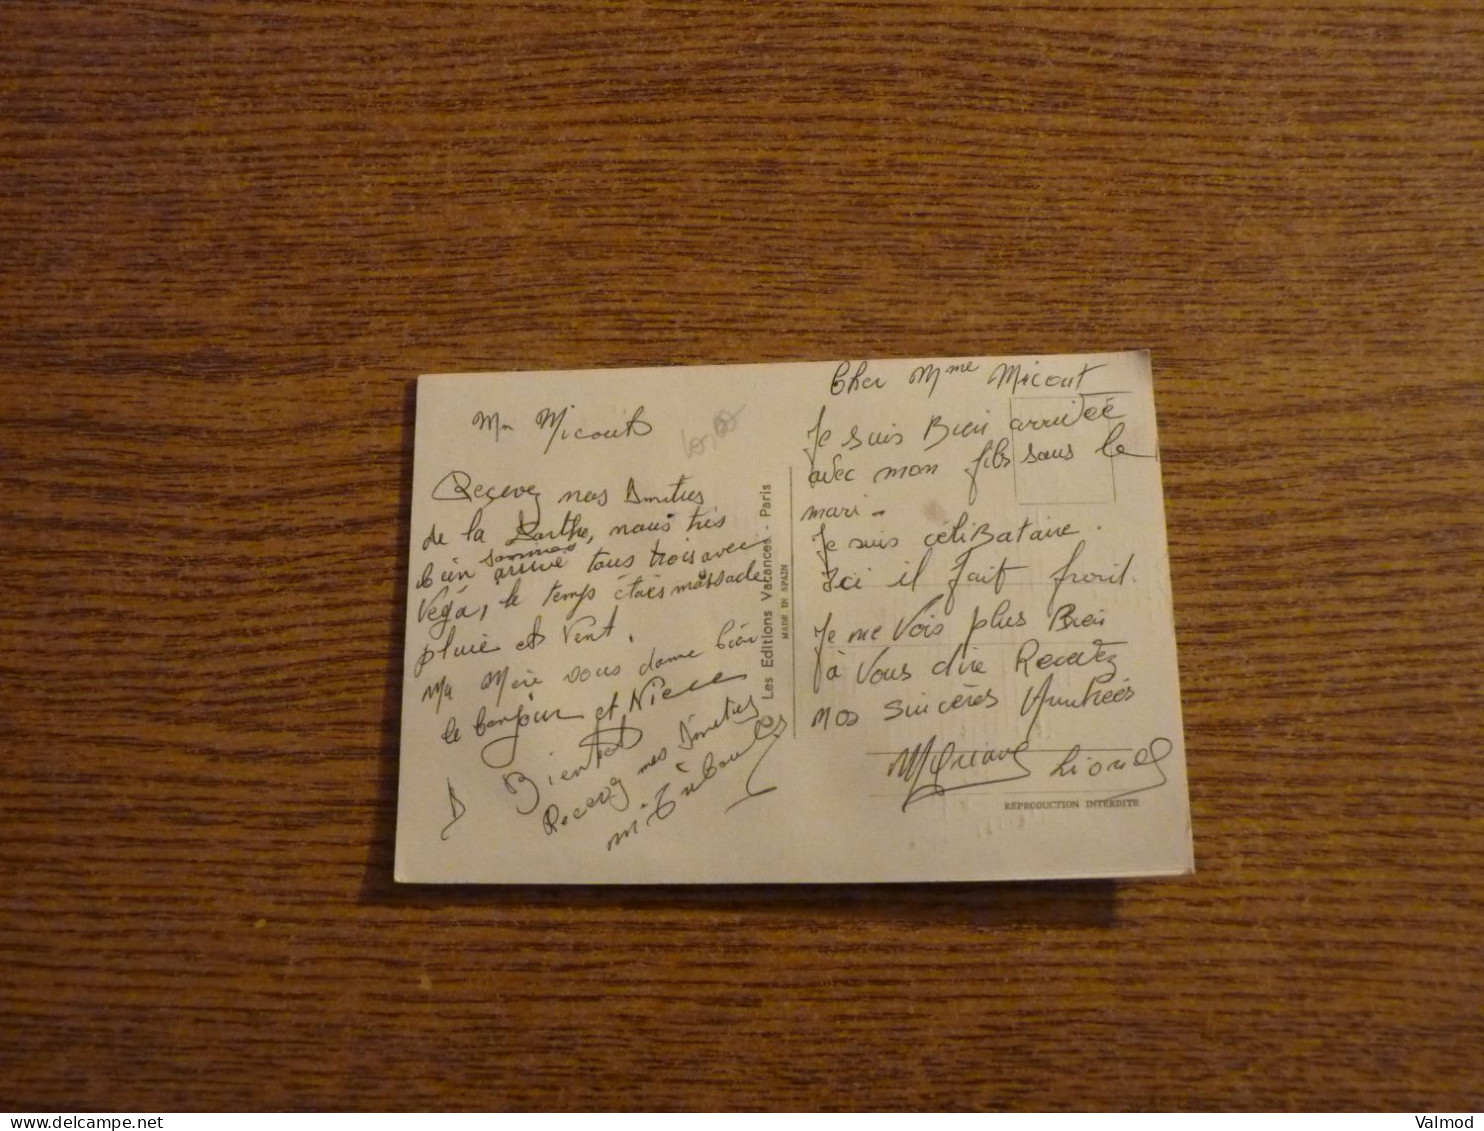 Mr Micout
Recevez nos Amitiés
de la Sarthe, nous
sommes
bien arrivé tous trois avec
Vega, le temps étais massade
pluie et Vent.
Ma Mère vous donne bien
le bonjour et Nièce
A Bientot
Recevez mes Amitiés
Les Editions Vacances - Paris
MADE IN SPAIN
Cher Mme Micout
Je suis Bien arrivée
avec mon fils sans le
mari -
Je suis céliBataire.
Ici il fait froid.
Je me Vois plus Bien
à Vous dire Recevez
nos sincères Amitiés
Lionel
REPRODUCTION INTERDITE
Valmod